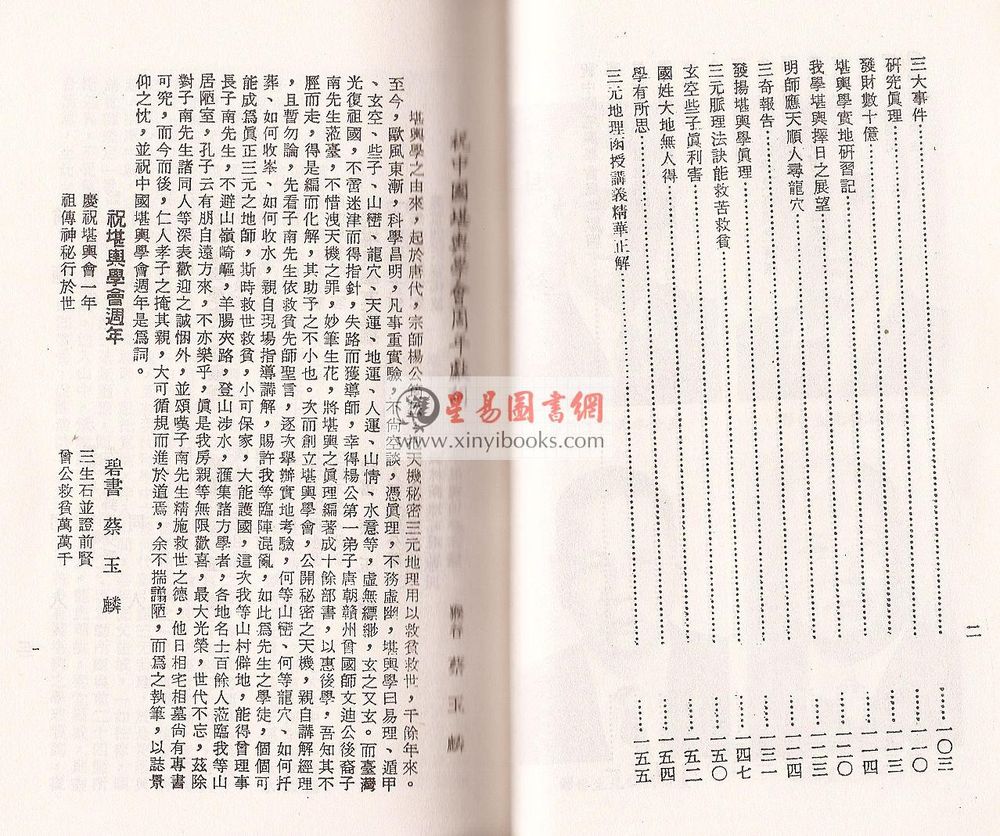 二
三大事件…………一〇三
研究眞理…………一一〇
發財數十億…………一一四
堪輿學實地研習記…………一二〇
我學堪輿擇日之展望…………一二三
明師應天順人尋龍穴…………一二四
三奇報告…………一三一
發揚堪輿學眞理…………一四七
三元脈理法訣能救苦救貧…………一五〇
玄空些子眞利害…………一五二
國姓大地無人得…………一五四
學有所思…………一五五
三元地理函授講義精華止解…………一五五
祝中國堪輿學會周年獻 蔡玉麟
堪輿學之由來，起於唐代，宗師楊公 天機秘密三元地理用以救貧救世，千餘年來。
至今，歐風東漸，科學昌明，凡事重實驗，不尚空談，憑眞理，不務虛幽，堪輿學曰易理、遁甲
、玄空、些子、山巒、龍穴、天運、地運、人運、山情、水意等，虛無縹緲，玄之又玄。而臺灣
光復祖國，不啻迷津而得指針，失路而獲導師，幸得楊公第一弟子唐朝贛州曾國師文迪公後裔子
南先生蒞臺，不惜洩天機之罪，妙筆生花，將堪輿之眞理編著成十餘部書，以惠後學，吾知其不
脛而走，得是編而化解，其助予之不小也。次而創立堪輿學會，公開秘密之天機，親自講解經理
，且暫勿論，先看子南先生依救貧先師聖言，逐次舉辦實地考驗，何等山巒、何等龍穴、如何扦
葬、如何收峯、如何收水，親自現場指導講解，賜許我等臨陣混亂，如此爲先生之學徒，個個可
能成爲眞正三元之地師，斯時救世救貧，小可保家，大能護國，這次我等山村僻地，能得曾理事
長子南先生，不避山嶺崎嶇，羊腸夾路，登山涉水，滙集諸方學者，各地名士百餘人蒞臨我等山
居陋室，孔子云有朋自遠方來，不亦樂乎，眞是我房親等無限歡喜，最大光榮，世代不忘，茲除
對子南先生諸同人等深表歡迎之誠悃外，並頌嘆子南先生精施救世之德，他日相宅相墓尚有專書
可究，而今而後，仁人孝子之掩其親，大可循規而進於道焉，余不揣譾陋，而爲之執筆，以誌景
仰之忱，並祝中國堪輿學會週年是爲詞。
祝堪輿學會週年 碧書 蔡玉麟
慶祝堪輿會一年 三生石並證前賢
祖傳神秘行於世 曾公救貧萬萬千
三
星易圖書網
www.xinyibooks.com